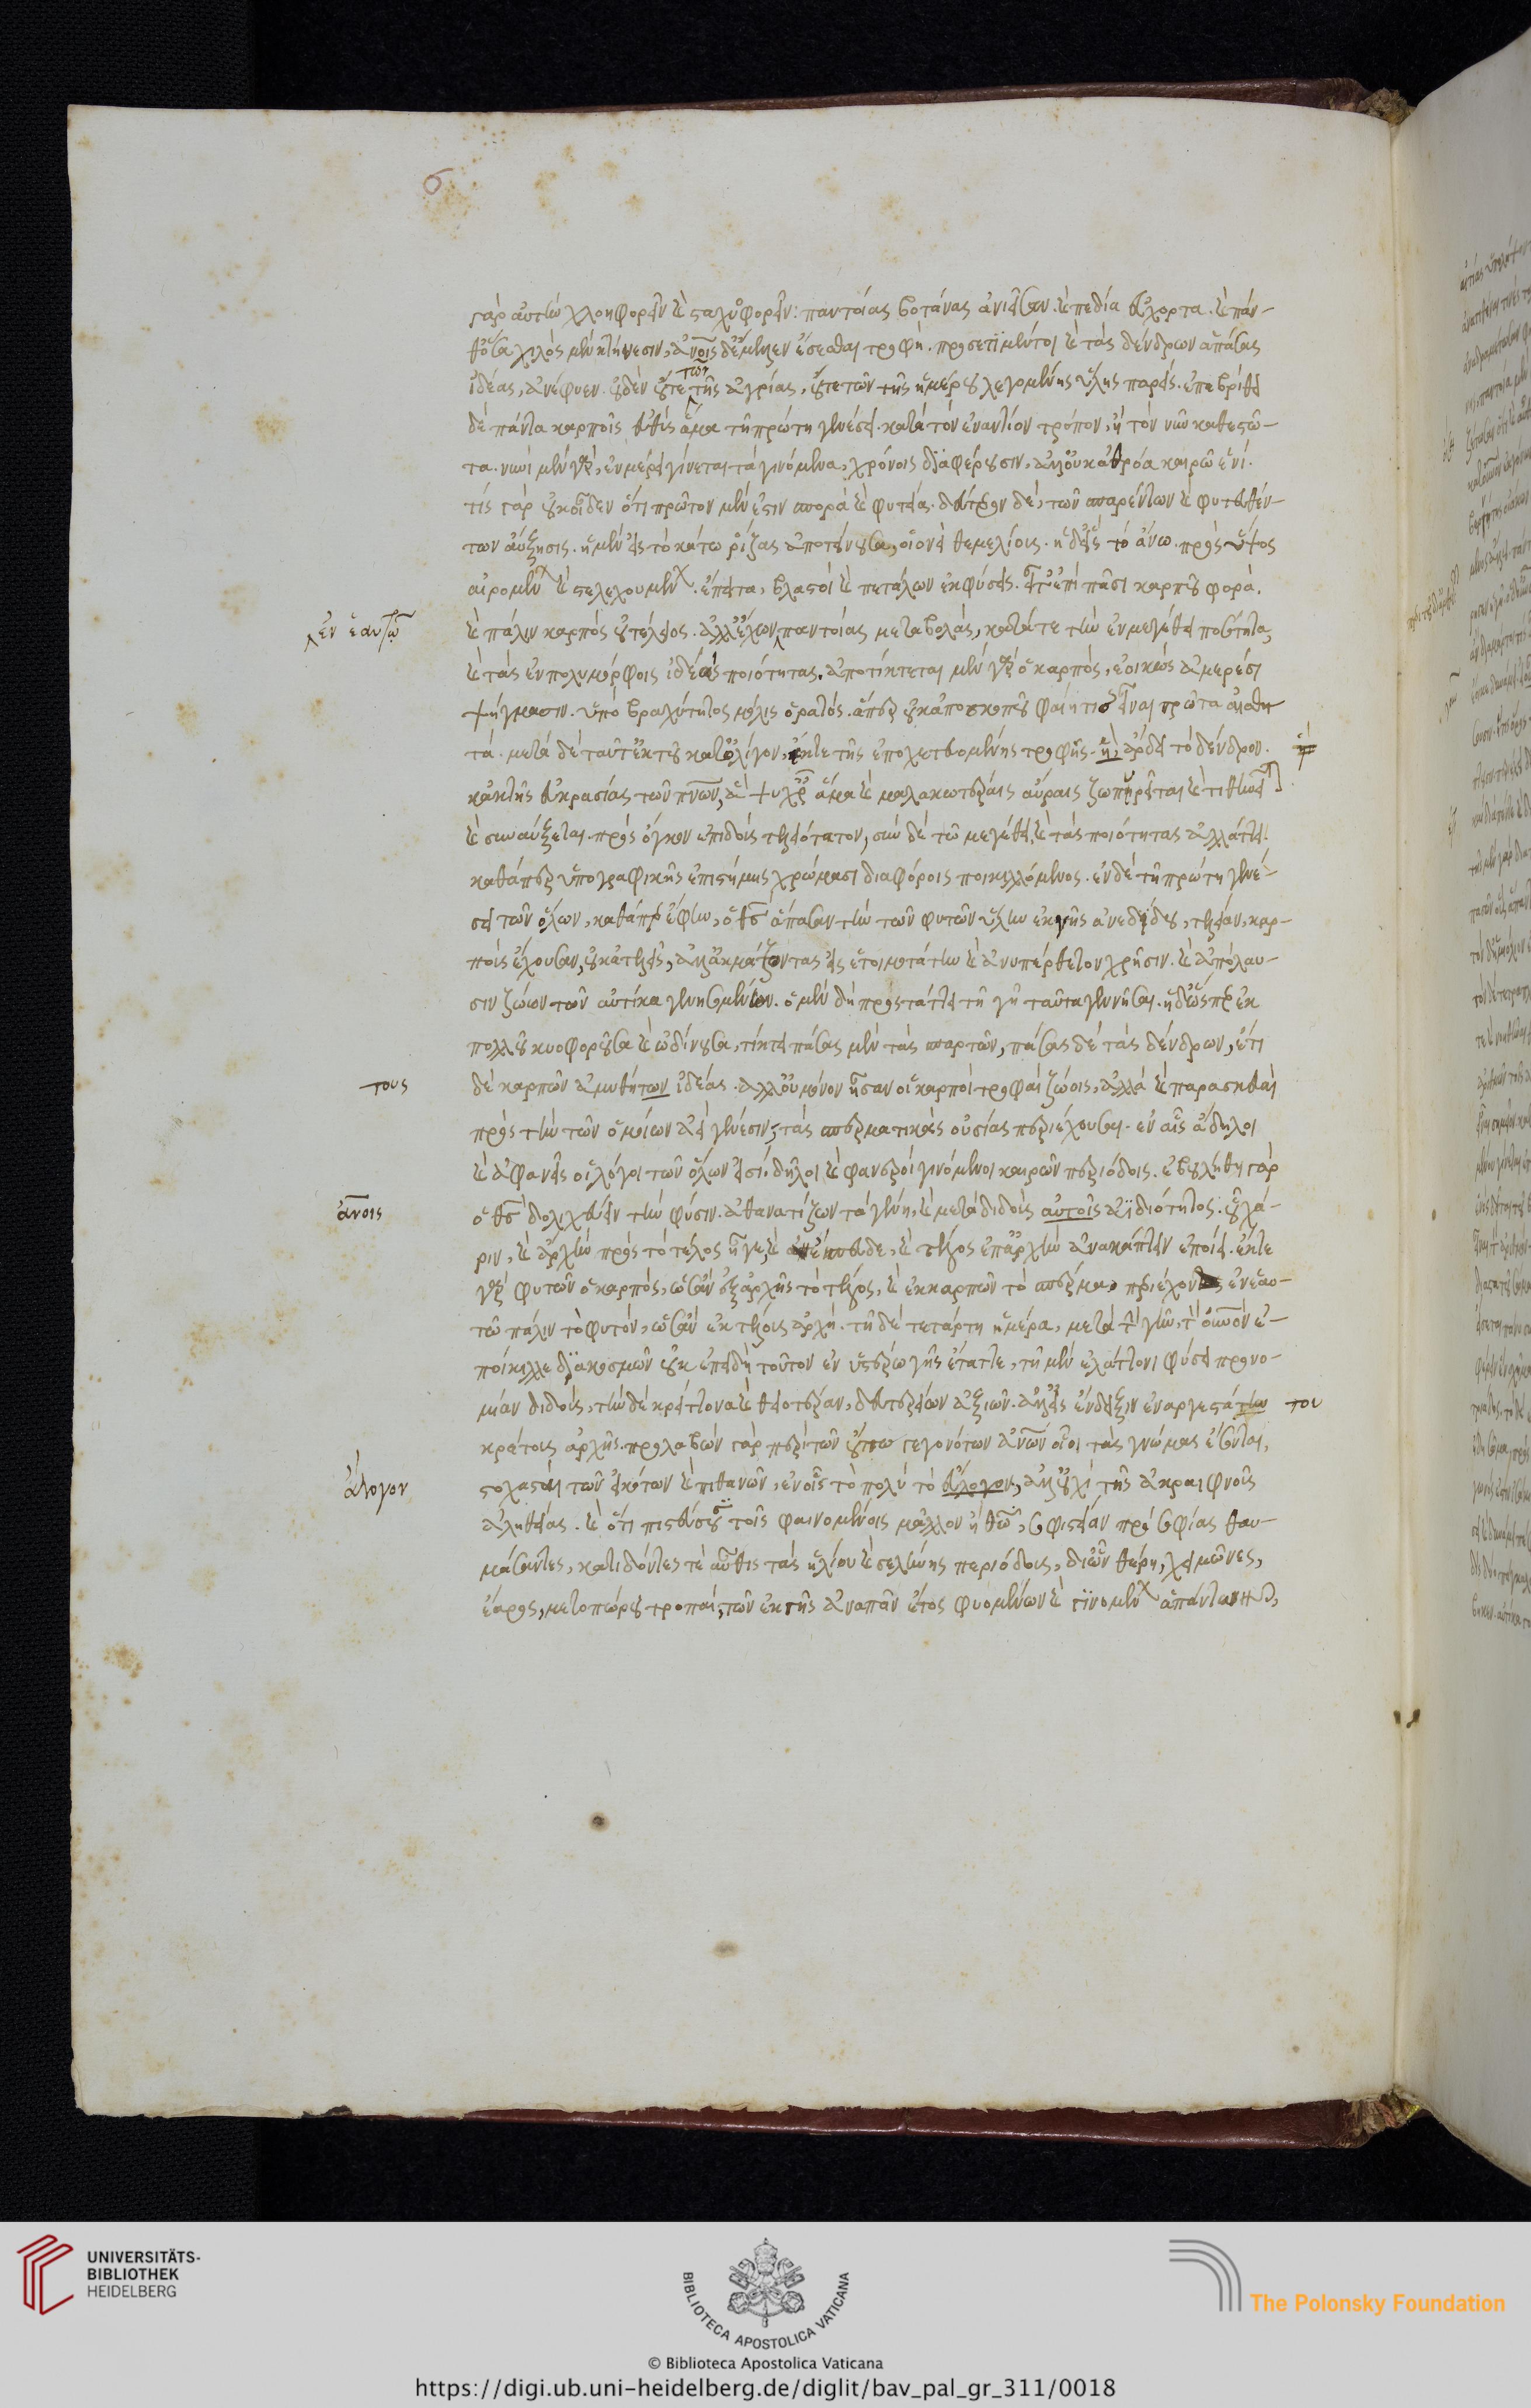 γὰρ αὐτὴν χλοηφορεῖν καὶ σταχυοφορεῖν· παντοίας βοτάνας ἀνιεῖσαν. καὶ πεδία εὔχορτα. καὶ πάν-
θ' ὅσα χιλὸς μὲν κτήνεσιν, ἀνοις δ' ἔμελλεν ἔσεσθαι τροφή. προσέτι μέντοι καὶ τὰς δένδρων ἁπάσας
ἰδέας, ἀνέφυεν. οὐδὲν οὔτε τῶν τῆς ἀγρίας, οὔτε τῶν τῆς ἡμέρου λεγομένης ὕλης παρείς. ἐπεβρίθει
δὲ πάντα καρποῖς εὐθὺς ἅμα τῇ πρώτῃ γενέσει. κατὰ τὸν ἐναντίον τρόπον, ἢ τὸν νῦν καθεστῶ-
τα. νυνὶ μὲν γὰρ, ἐν μέρει γίνεται τὰ γινόμενα, χρόνοις διαφέρουσιν, ἀλλ' οὐκ ἀθρόα καιρῷ ἑνί.
τίς γὰρ οὐκ οἶδεν ὅτι πρῶτον μέν ἐστιν σπορὰ καὶ φυτεία. δεύτερον δὲ, τῶν σπαρέντων καὶ φυτευθέν-
των αὔξησις. ἡ μὲν εἰς τὸ κάτω ῥίζας ἀποτείνουσα, οἱονεὶ θεμελίους. ἡ δ' εἰς τὸ ἄνω. πρὸς ὕψος
αἰρομέν καὶ στελεχουμέν. ἔπειτα, βλαστοὶ καὶ πετάλων ἐκφύσεις. εἶτ' ἐπὶ πᾶσι καρποῦ φορά.
ἐν ἑαυτῷ
καὶ πάλιν καρπὸς οὐ τέλειος. ἀλλ' ἔχων παντοίας μεταβολὰς, κατά τε τὴν ἐν μεγέθει ποσότητα,
καὶ τὰς ἐν πολυμόρφοις ἰδέαις ποιότητας. ἀποτίκτεται μὲν γὰρ ὁ καρπὸς, ἐοικὼς ἀμερέσι
ψήγμασιν. ὑπὸ βραχύτητος μόλις ὁρατός. ἅπερ οὐκ ἀπὸ σκοποῦ φαίη τις εἶναι πρῶτα αἰσθη
τά. μετὰ δὲ ταῦτ' ἐκ τοῦ κατ' ὀλίγον, ἔκ τε τῆς ἐποχετευομένης τροφῆς. ἣ, ἄρδει τὸ δένδρον.
κἀκ τῆς εὐκρασίας τῶν πνων, ἃ ψυχρ ἅμα καὶ μαλακωτέραις αὔραις ζωπυρεῖται καὶ τιθηνεῖ
καὶ συναύξεται. πρὸς ὄγκον ἐπιδοὺς τελειότατον, σὺν δὲ τῷ μεγέθει, καὶ τὰς ποιότητας ἀλλάττει.
καθάπερ ὑπὸ γραφικῆς ἐπιστήμης χρώμασι διαφόροις ποικιλλόμενος. ἐν δὲ τῇ πρώτῃ γενέ-
σει τῶν ὅλων, καθάπερ ἔφην, ὁ θς ἅπασαν τὴν τῶν φυτῶν ὕλην ἐκ γῆς ἀνεδίδου, τελείαν, καρ-
ποὺς ἔχουσαν, οὐκ ἀτελεῖς, ἀλλ' ἀκμάζοντας εἰς ἑτοιμοτάτην καὶ ἀνυπέρθετον χρῆσιν. καὶ ἀπόλαυ-
σιν ζώων τῶν αὐτίκα γενησομένων. ὁ μὲν δὴ προστάττει τῇ γῇ ταῦτα γεννῆσαι. ἡ δ' ὥσπερ ἐκ
πολλοῦ κυοφοροῦσα καὶ ὠδίνουσα, τίκτει πάσας μὲν τὰς σπαρτῶν, πάσας δὲ τὰς δένδρων, ἔτι
τους
δὲ καρπῶν ἀμυθήτων ἰδέας. ἀλλ' οὐ μόνον ἦσαν οἱ καρποὶ τροφαὶ ζώοις, ἀλλὰ καὶ παρασκευαὶ
πρὸς τὴν τῶν ὁμοίων ἀεὶ γένεσιν, τὰς σπερματικὰς οὐσίας περιέχουσαι. ἐν αἷς ἄδηλοι
καὶ ἀφανεῖς οἱ λόγοι τῶν ὅλων εἰσί. δῆλοι καὶ φανεροὶ γινόμενοι καιρῶν περιόδοις. ἐβουλήθη γὰρ
ἀνοις
ὁ θς δολιχεύειν τὴν φύσιν. ἀθανατίζων τὰ γένη, καὶ μεταδιδοὺς αὐτοῖς ἀϊδιότητος. οὗ χά-
ριν, καὶ ἀρχὴν πρὸς τὸ τέλος ἦγε, καὶ ἐπέσπευδε, καὶ τέλος ἐπ' ἀρχὴν ἀνακάμπτειν ἐποίει. ἔκ τε
γὰρ φυτῶν ὁ καρπὸς, ὡσὰν ἐξ ἀρχῆς τὸ τέλος, καὶ ἐκ καρπῶν τὸ σπέρμα, περιέχοντος ἐν ἑαυ-
τῷ πάλιν τὸ φυτόν, ὡσὰν ἐκ τέλους ἀρχή. τῇ δὲ τετάρτῃ ἡμέρᾳ, μετὰ τ γῆν, τ οὐνον ἐ-
ποίκιλλε διακοσμῶν οὐκ ἐπειδὴ τοῦτον ἐν ὑστέρῳ γῆς ἔταττε, τῇ μὲν ἐλάττονι φύσει προνο-
μίαν διδοὺς, τὴν δὲ κρείττονα καὶ θειοτέραν, δευτερείων ἀξιῶν. ἀλλ' εἰς ἔνδειξιν ἐναργεστάτην
του
κράτους ἀρχῆς. προλαβὼν γὰρ περὶ τῶν οὔπω γεγονότων ἀνων οἷοι τὰς γνώμας ἔσονται,
ἄλογον
στοχασταὶ τῶν εἰκότων καὶ πιθανῶν, ἐν οἷς τὸ πολὺ τὸ εὔλογον, ἀλλ' οὐχὶ τῆς ἀκραιφνοῦς
ἀληθείας. καὶ ὅτι πιστεύσουσι τοῖς φαινομένοις μᾶλλον ἢ θεῷ, σοφιστείαν πρὸ σοφίας θαυ-
μάσαντες, κατιδόντες τε αὖθις τὰς ἡλίου καὶ σελήνης περιόδους, δι' ὧν θέρη, χειμῶνες,
ἔαρος, μετοπώρου τροπαί, τῶν ἐκ τῆς ἀνὰ πᾶν ἔτος φυομένων καὶ γινομέν ἁπάντων
UNIVERSITÄTS-
BIBLIOTHEK
HEIDELBERG
BIBLIOTECA APOSTOLICA VATICANA
The Polonsky Foundation
© Biblioteca Apostolica Vaticana
https://digi.ub.uni-heidelberg.de/diglit/bav_pal_gr_311/0018